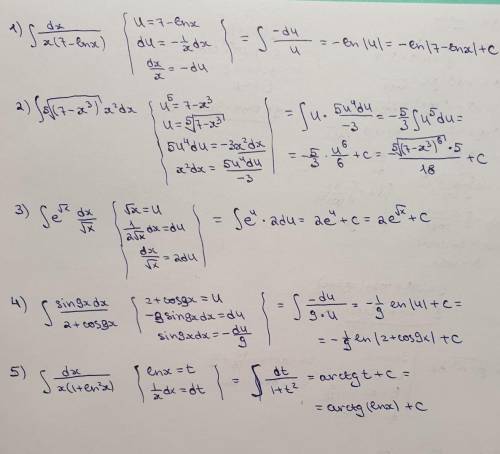 1) ∫ dx / x(7-lnx) { u=7-lnx du=-1/x dx dx/x=-du } = ∫ -du/u = -ln|u| = -ln|7-lnx|+C
2) ∫ ⁵√(7-x³) x²dx { u⁵=7-x³ u=⁵√(7-x³) 5u⁴du=-3x²dx x²dx=5u⁴du/-3 } = ∫u·5u⁴du/-3 = -5/3 ∫u⁵du=
= -5/3 · u⁶/6 +C = - ⁵√(7-x³)⁶ ·5 / 18 +C
3) ∫e^√x dx/√x { √x=u 1/2√x dx=du dx/√x=2du } = ∫eᵘ·2du = 2eᵘ+C = 2e^√x+C
4) ∫ sin9xdx / 2+cos9x { 2+cos9x=u -9sin9xdx=du sin9xdx=-du/9 } = ∫ -du/9·u = -1/9 ln|u|+C=
= -1/9 ln|2+cos9x|+C
5) ∫ dx / x(1+ln²x) { lnx=t 1/x dx=dt } = ∫ dt/1+t² = arctgt+C=
= arctg(lnx)+C